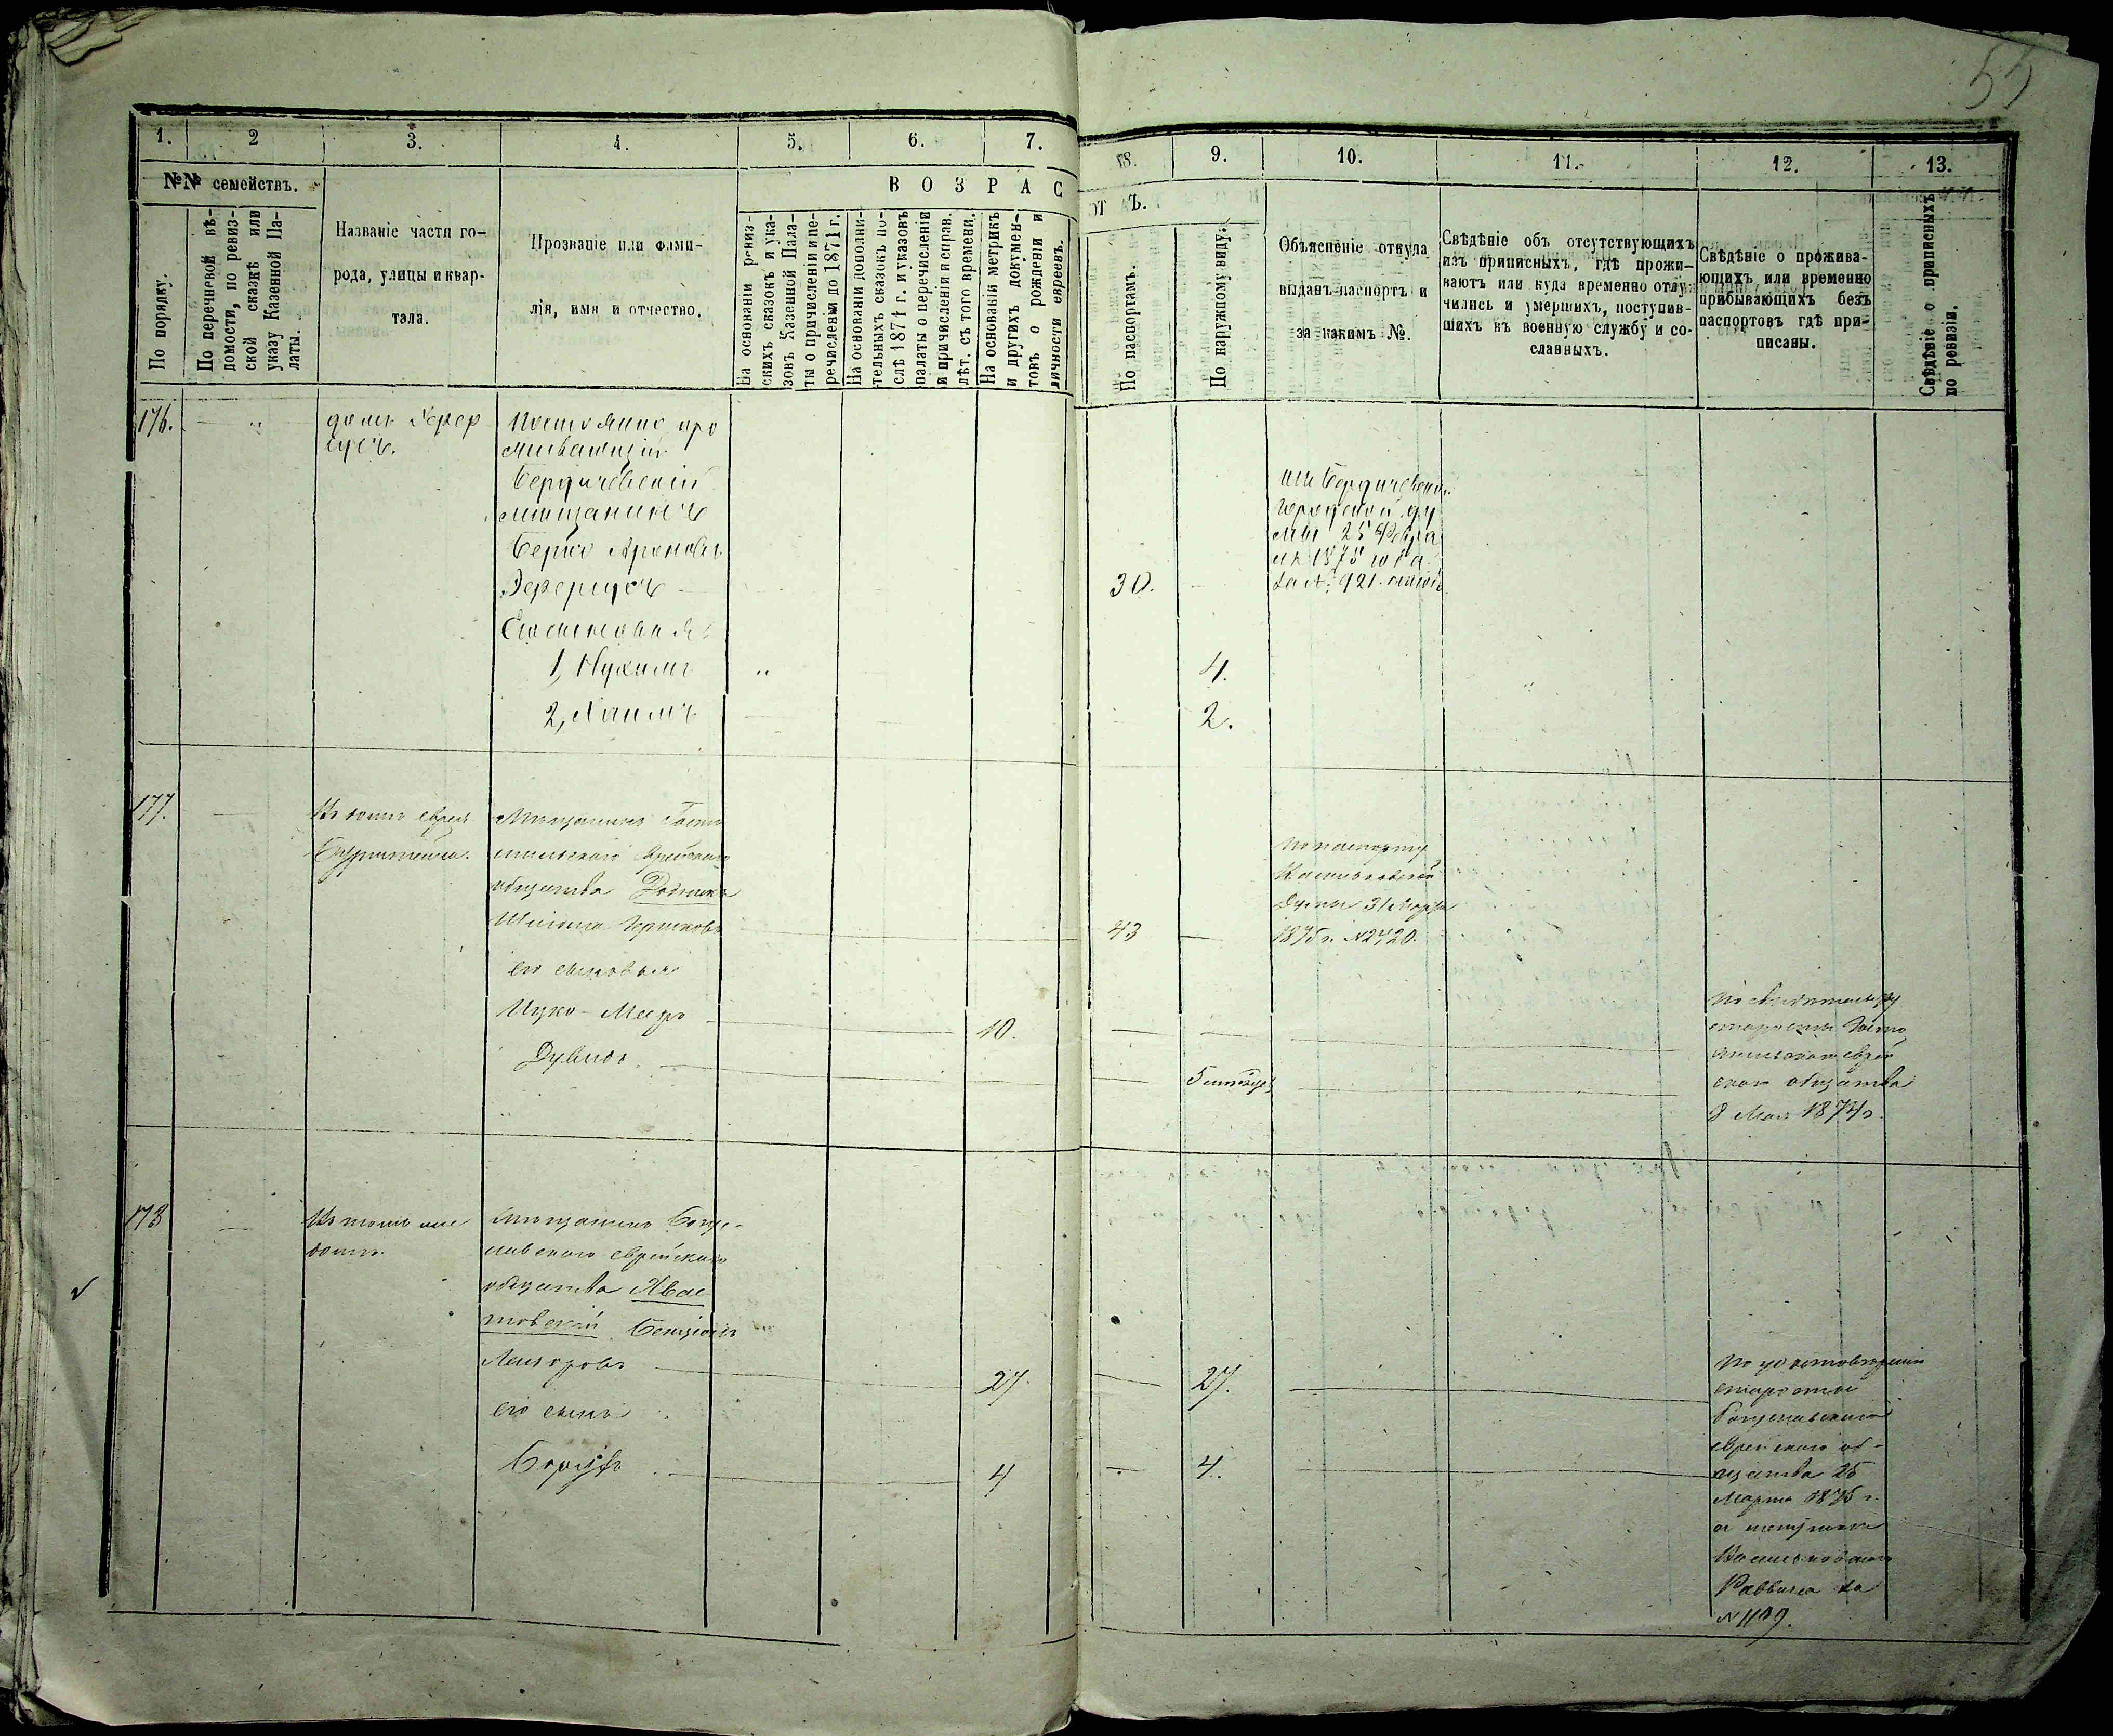 55
1.
2
3.
4.
5.
6.
7.
8.
9.
10.
11.
12.
13.
№№ семействъ.
По порядку.
По перечневой вѣ-
домости, по ревиз-
ской сказкѣ или
указу Казенной Па-
латы.
Названіе части го-
рода, улицы и квар-
тала.
Прозваніе или фами-
лія, имя и отчество.
ВОЗРАС
ОТЪ.
На основаніи ревиз-
скихъ сказокъ и ука-
зовъ Казенной Пала-
ты о причисленіи и пе-
речисленіи до 1871 г.
На основаніи дополни-
тельныхъ сказокъ по-
слѣ 1871 г. и указовъ
палаты о перечисленіи
и причисленіи и справ.
лѣт. съ того времени.
На основаніи метрикъ
и другихъ докумен-
товъ о рожденіи и
личности евреевъ.
По паспортамъ.
По наружному виду.
Объясненіе откуда
выданъ паспортъ и
за какимъ №.
Свѣдѣніе объ отсутствующихъ
изъ приписныхъ, гдѣ прожи-
ваютъ или куда временно отлу-
чились и умершихъ, поступив-
шихъ въ военную службу и со-
сланныхъ.
Свѣдѣніе о прожива-
ющихъ или временно
прибывающихъ безъ
паспортовъ гдѣ при-
писаны.
Свѣдѣніе о приписныхъ
по ревизіи.
176.
домъ
Постоянно про
живающій
Бердичевскій
мѣщанинъ
Берко Ароновъ
Его сыновья
1, Нухимъ
2, Хаимъ
30.
4.
2.
Бердичевской
городской ду
мы 25 Февра
ля 1875 года
за №. 921.
177.
Въ домѣ еврея
Мѣщанинъ
еврейскаго
общества
его сыновья
Ицко-Мееръ
Дувидъ
10.
43
5
По паспорту
Думы 31 Марта
1875 г. №
старосты
еврей
скаго общества
8 Мая 1874 г.
178
Въ томъ же
домѣ
Мѣщанинъ Богу-
славскаго еврейскаго
общества Хвас
товскій Бенціонъ
Лейзоровъ
его сынъ
Борухъ
27
4
27.
4.
По удостовѣренію
старосты
Богуславскаго
еврейскаго об-
щества 25
Марта 1875 г.
и
Васильковскаго
Раввина за
№ 1109.